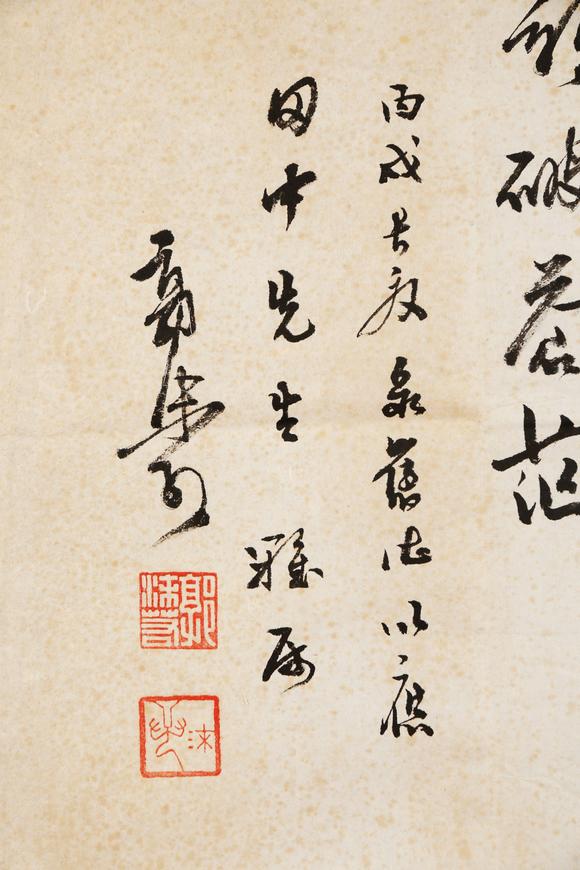 破蒼茫
丙戌長夏录舊作以應
田中先生雅属
郭沫若
郭沫若
沫若